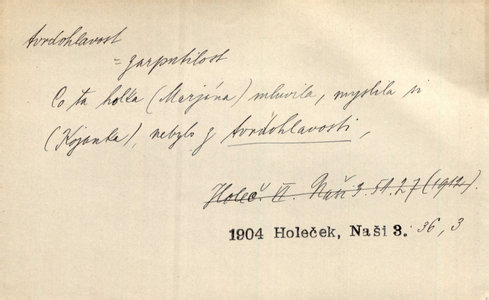 tvrdohlavost
= garputilost
Co ta holka (Marjána) mluvila, myslila si
(Kojanka), nebylo z tvrdohlavosti,
Holeč. VI. Naši 3. 51. 27 (1912).
1904 Holeček, Naši 3. 36, 3